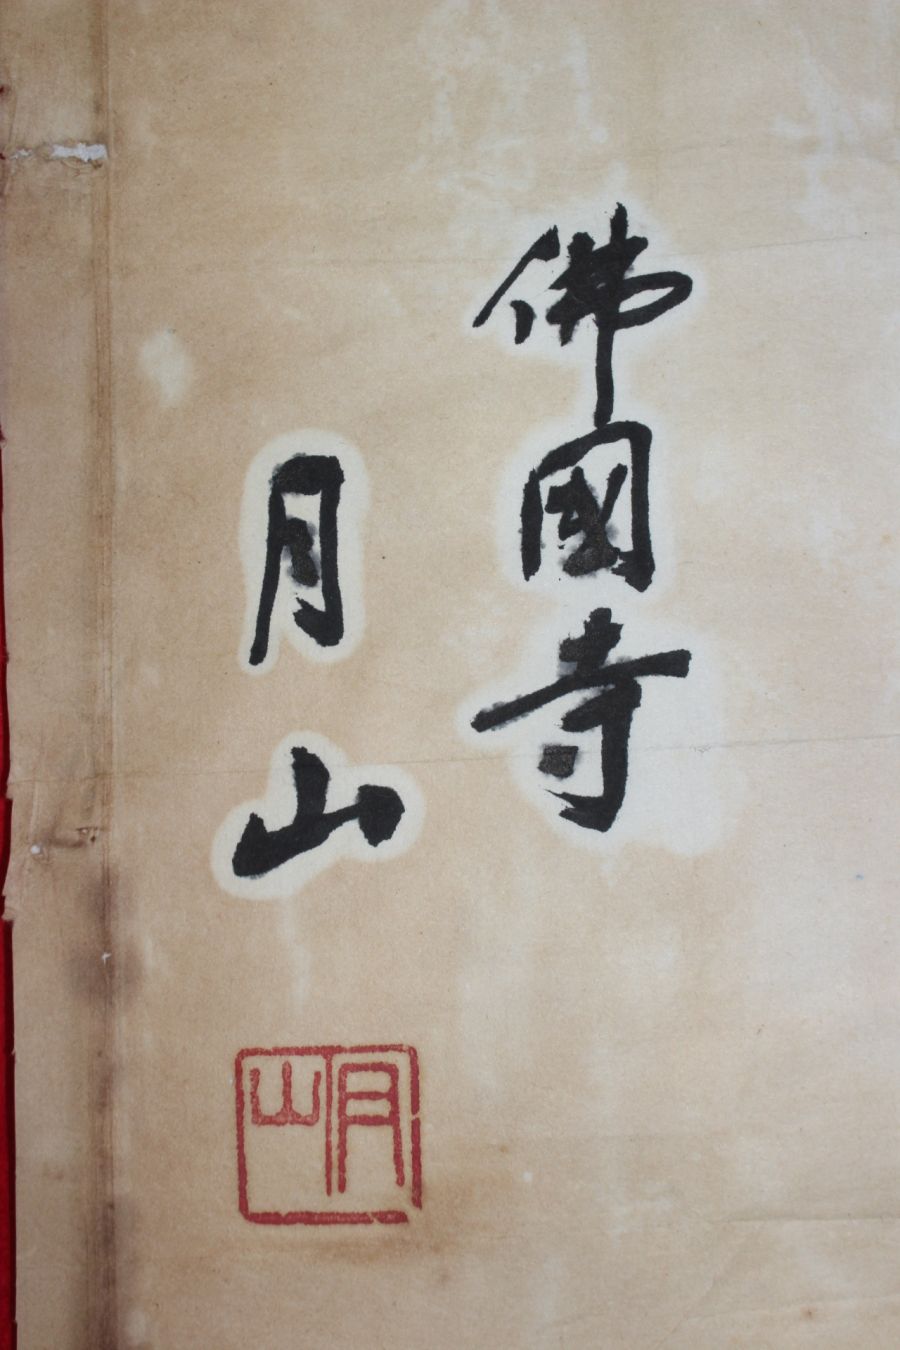 佛國寺
月山
月山